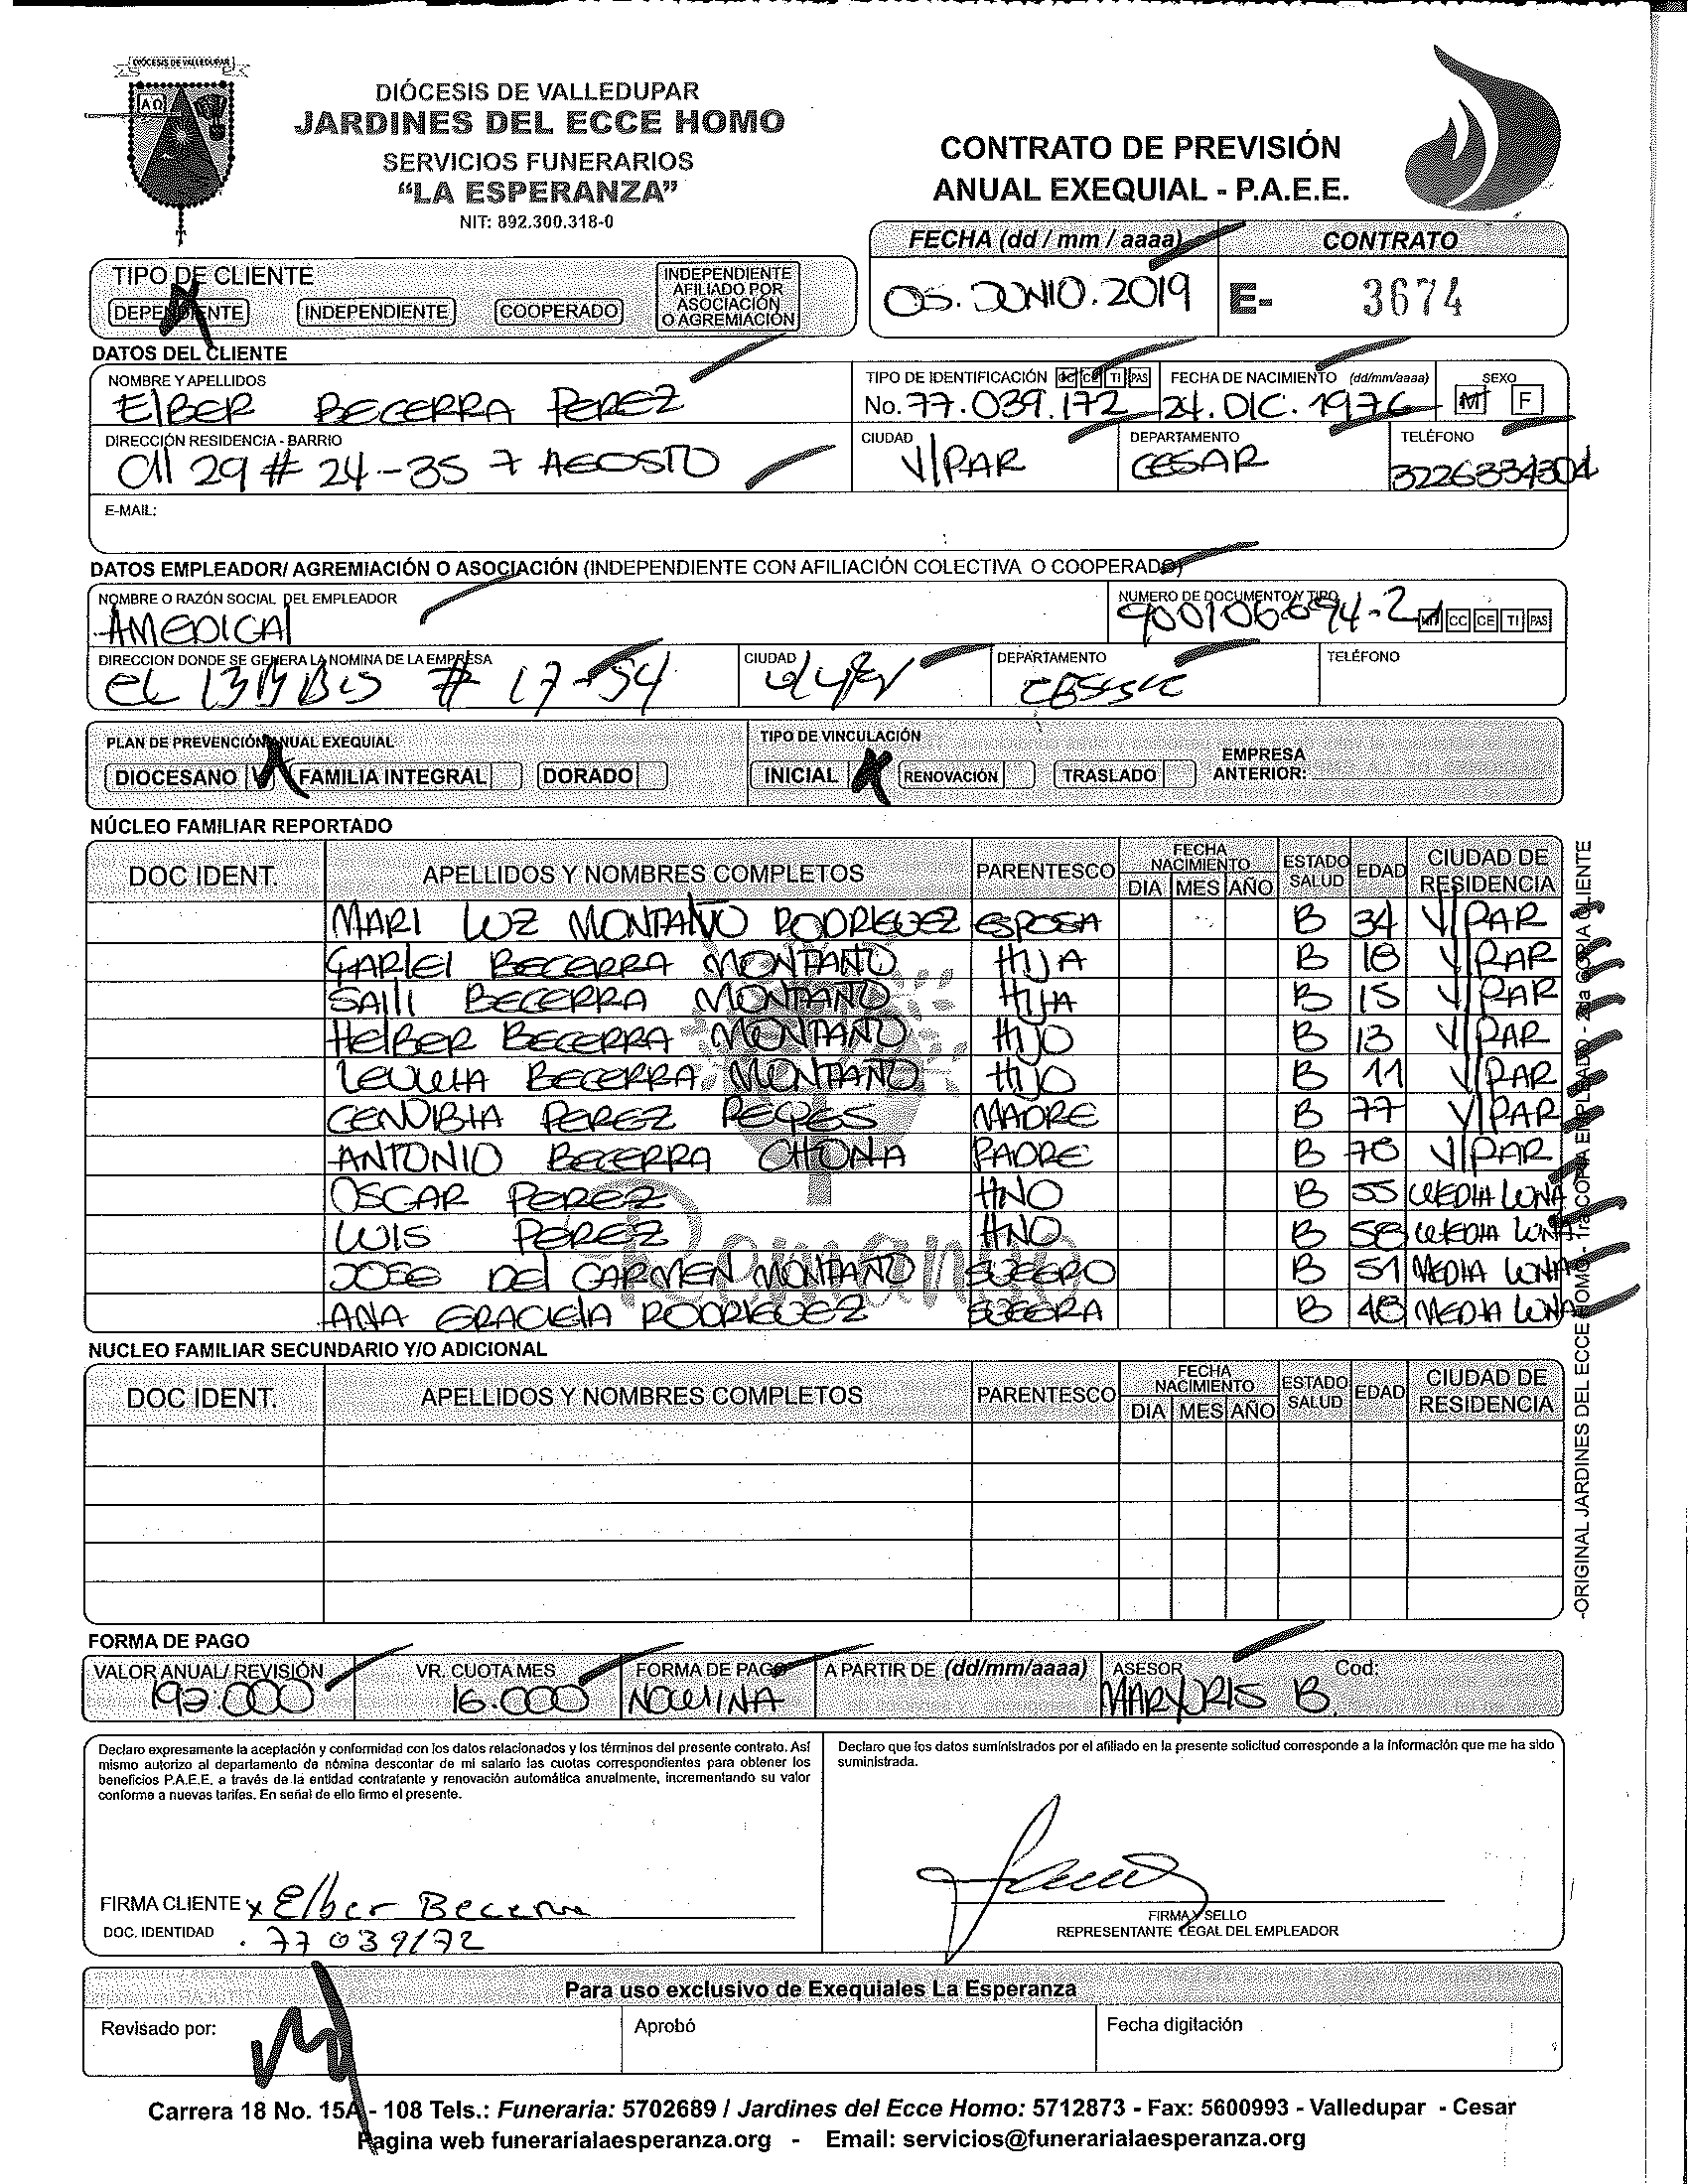 DIÓCESIS DE VALLEDUPAR
DIÓCESIS DE VALLEDUPAR
JARDINES DEL ECCE HOMO
SERVICIOS FUNERARIOS
“LA ESPERANZA”
NIT: 892.300.318-0
CONTRATO DE PREVISIÓN
ANUAL EXEQUIAL - P.A.E.E.
FECHA (dd / mm / aaaa) CONTRATO
05. JUNIO. 2019 E- 3674
TIPO DE CLIENTE
DEPENDIENTE INDEPENDIENTE COOPERADO INDEPENDIENTE AFILIADO POR ASOCIACIÓN O AGREMIACIÓN
DATOS DEL CLIENTE
NOMBRE Y APELLIDOS TIPO DE IDENTIFICACIÓN CC CE TI PAS FECHA DE NACIMIENTO (dd/mm/aaaa) SEXO
ElBER BECERRA PEREZ No. 77.039.172 24. DIC. 1976 M F
DIRECCIÓN RESIDENCIA - BARRIO CIUDAD DEPARTAMENTO TELÉFONO
Cll 29 # 24-35 7 AGOSTO V/PAR CESAR 3226334304
E-MAIL:
DATOS EMPLEADOR/ AGREMIACIÓN O ASOCIACIÓN (INDEPENDIENTE CON AFILIACIÓN COLECTIVA O COOPERADO)
NOMBRE O RAZÓN SOCIAL DEL EMPLEADOR NUMERO DE DOCUMENTO Y TIPO
AMEDICAl 900106694-2 NIT CC CE TI PAS
DIRECCION DONDE SE GENERA LA NOMINA DE LA EMPRESA CIUDAD DEPARTAMENTO TELÉFONO
# 17-54
PLAN DE PREVENCIÓN ANUAL EXEQUIAL TIPO DE VINCULACIÓN
DIOCESANO FAMILIA INTEGRAL DORADO INICIAL RENOVACIÓN TRASLADO EMPRESA ANTERIOR:
NÚCLEO FAMILIAR REPORTADO
DOC IDENT. APELLIDOS Y NOMBRES COMPLETOS PARENTESCO FECHA NACIMIENTO DIA MES AÑO ESTADO SALUD EDAD CIUDAD DE RESIDENCIA
MARI LUZ MONTAÑO RODRIGUEZ ESPOSA B 34 V/PAR
BECERRA MONTAÑO HIJA B 18 V/PAR
SAILI BECERRA MONTAÑO HIJA B 15 V/PAR
HElBER BECERRA MONTAÑO HIJO B 13 V/PAR
BECERRA MONTAÑO HIJO B 11 V/PAR
CENOBIA PEREZ REYES MADRE B 77 V/PAR
ANTONIO BECERRA CHONA PADRE B 78 V/PAR
OSCAR PEREZ HNO B 55 MEDIA LUNA
LUIS PEREZ HNO B 58 MEDIA LUNA
JOSE DEl CARMEN MONTAÑO SUEGRO B 51 MEDIA LUNA
ANA GRACIELA RODRIGUEZ SUEGRA B 48 MEDIA LUNA
Remanso
NUCLEO FAMILIAR SECUNDARIO Y/O ADICIONAL
DOC IDENT. APELLIDOS Y NOMBRES COMPLETOS PARENTESCO FECHA NACIMIENTO DIA MES AÑO ESTADO SALUD EDAD CIUDAD DE RESIDENCIA
-ORIGINAL JARDINES DEL ECCE HOMO - 1ra COPIA EMPLEADO - 2da COPIA CLIENTE
FORMA DE PAGO
VALOR ANUAL/ REVISIÓN VR. CUOTA MES FORMA DE PAGO A PARTIR DE (dd/mm/aaaa) ASESOR Cod:
192.000 16.000 NOMINA MARYORIS B.
Declaro expresamente la aceptación y conformidad con los datos relacionados y los términos del presente contrato. Así
mismo autorizo al departamento de nómina descontar de mi salario las cuotas correspondientes para obtener los
beneficios P.A.E.E. a través de la entidad contratante y renovación automática anualmente, incrementando su valor
conforme a nuevas tarifas. En señal de ello firmo el presente.
Declaro que los datos suministrados por el afiliado en la presente solicitud corresponde a la información que me ha sido
suministrada.
FIRMA CLIENTE x Elber Becerra
DOC. IDENTIDAD 77039172
FIRMA Y SELLO
REPRESENTANTE LEGAL DEL EMPLEADOR
Para uso exclusivo de Exequiales La Esperanza
Revisado por: Aprobó Fecha digitación
Carrera 18 No. 15A - 108 Tels.: Funeraria: 5702689 / Jardines del Ecce Homo: 5712873 - Fax: 5600993 - Valledupar - Cesar
Pagina web funerarialaesperanza.org - Email: servicios@funerarialaesperanza.org